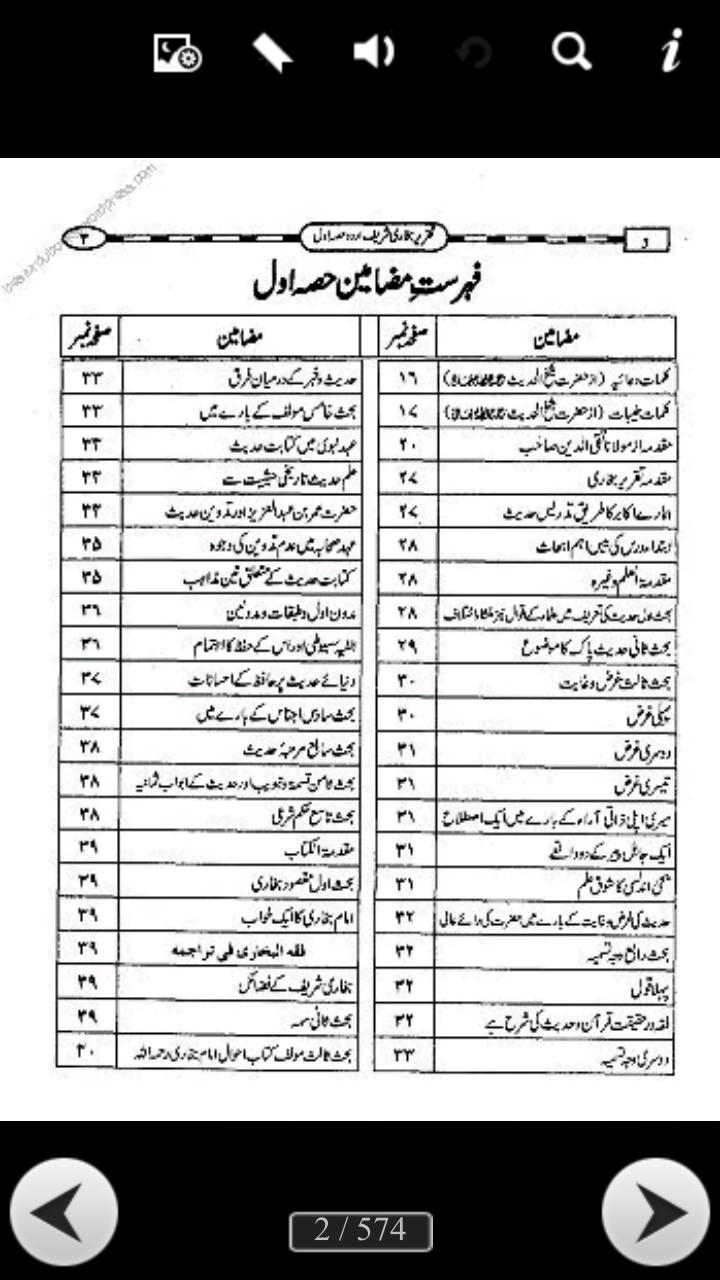 تقریر بخاری شریف اردو حصہ اول
۳
فہرستِ مضامین حصہ اول
مضامین صفحہ نمبر
کلمات دعائیہ (از حضرت شیخ الحدیث ۱۶
کلمات طیبات (از حضرت شیخ الحدیث ۱۷
مقدمہ از مولانا تقی الدین صاحب ۲۰
مقدمہ تقریر بخاری ۲۷
ہمارے اکابر کا طریق تدریس حدیث ۲۷
ابتداء درس کی بیس اہم ابحاث ۲۸
مقدمۃ العلم وغیرہ ۲۸
بحث اول حدیث کی تعریف میں علماء کے اقوال ۲۸
بحث ثانی حدیث پاک کا موضوع ۲۹
بحث ثالث غرض وغایت ۳۰
پہلی غرض ۳۰
دوسری غرض ۳۱
تیسری غرض ۳۱
میری اپنی ذاتی آراء کے بارے میں ایک اصطلاح ۳۱
ایک جاہل پیر کے دو واقعے ۳۱
اندلسی کا شوق علم ۳۱
حدیث کی غرض وغایت کے بارے میں حضرت کی رائے عالی ۳۲
بحث رابع وجہ تسمیہ ۳۲
پہلا قول ۳۲
فقہ در حقیقت قرآن وحدیث کی شرح ہے ۳۲
دوسری وجہ تسمیہ ۳۳
مضامین صفحہ نمبر
حدیث وخبر کے درمیان فرق ۳۳
بحث خامس مولف کے بارے میں ۳۳
عہد نبوی میں کتابت حدیث ۳۳
علم حدیث تاریخی حیثیت سے ۳۳
حضرت عمر بن عبدالعزیز اور تدوین حدیث ۳۴
عہد صحابہ میں عدم تدوین کی وجوہ ۳۵
کتابت حدیث کے متعلق تین مذاہب ۳۵
مدون اول وطبقات ومدونین ۳۶
الفیہ سیوطی اور اس کے حفظ کا اہتمام ۳۶
دنیائے حدیث پر حافظ کے احسانات ۳۷
بحث سادس اجناس کے بارے میں ۳۷
بحث سابع مرتبۂ حدیث ۳۸
بحث ثامن قسمۃ وتبویب اور حدیث کے ابواب ثمانیہ ۳۸
بحث تاسع حکم شرعی ۳۸
مقدمۃ الکتاب ۳۹
بحث اول مقصود بخاری ۳۹
امام بخاری کا ایک خواب ۳۹
فقه البخاری فی تراجمه ۳۹
بخاری شریف کے فضائل ۳۹
بحث ثانی سمہ ۳۹
بحث ثالث مولف کتاب احوال امام بخاری رحمہ اللہ ۴۰
2 / 574